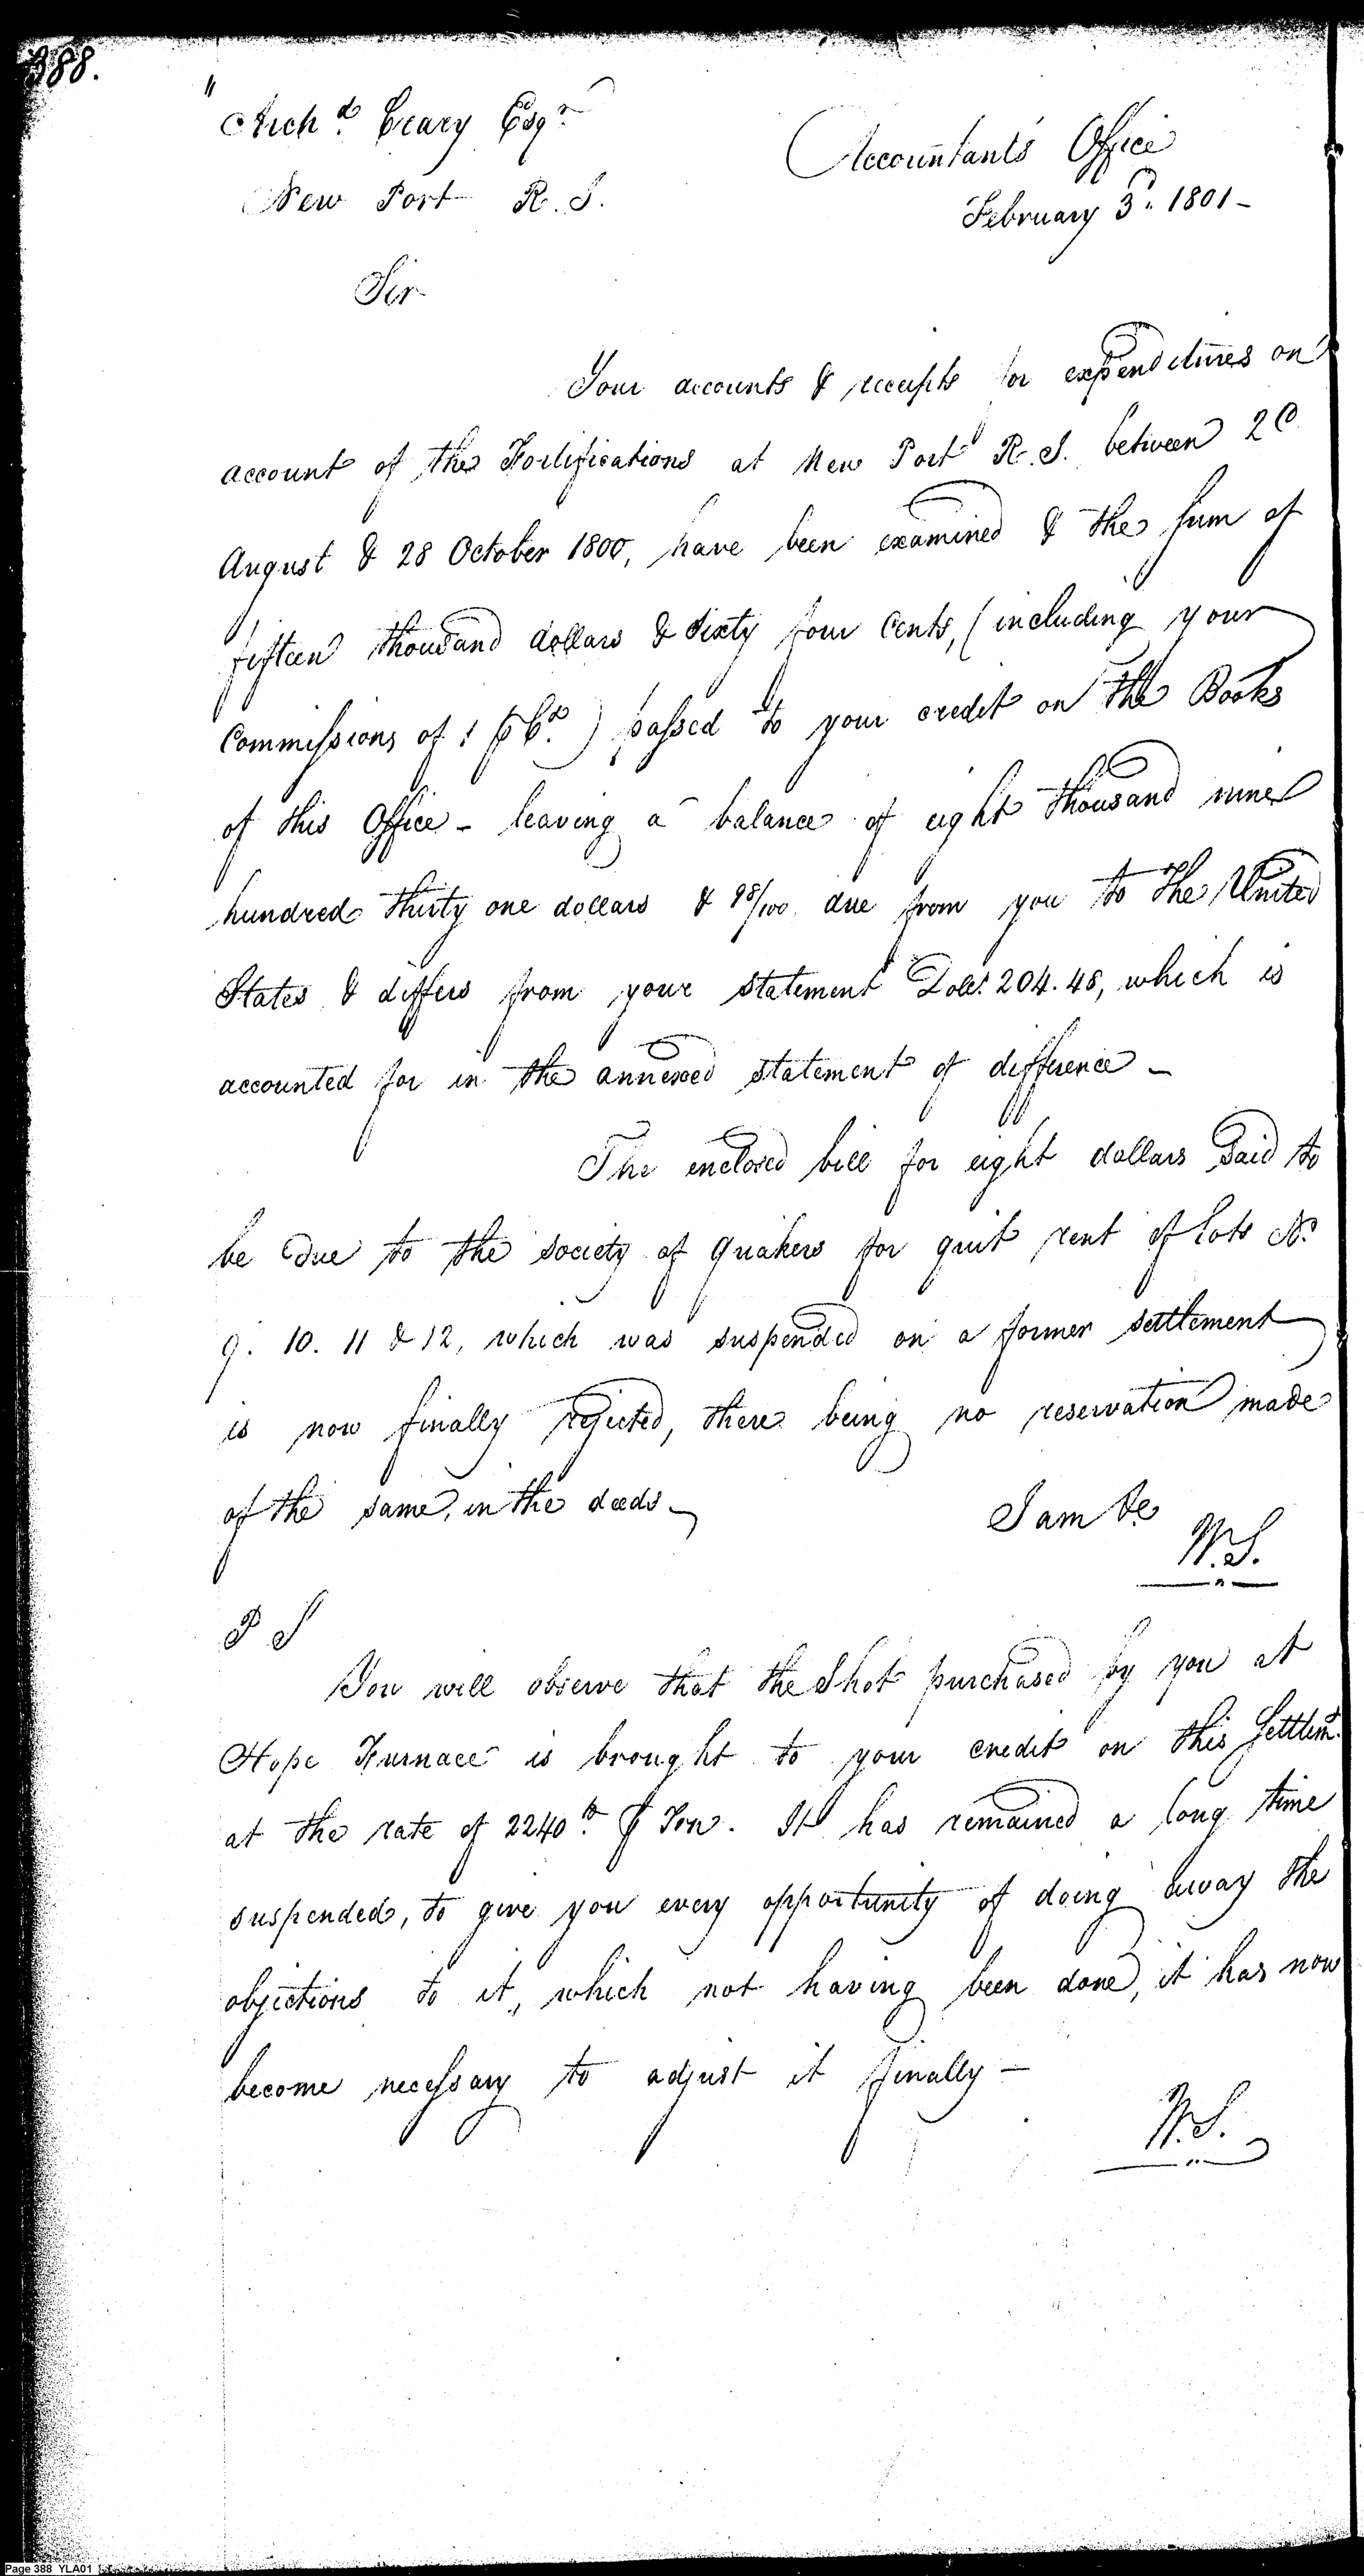 388.
Archd. Crary Esqr.
Accountants Office
New Port R.I.
February 3d. 1801 -
Sir
Your accounts & receipts for expenditures on
account of the Fortifications at New Port R.I. between 20
August & 28 October 1800, have been examined & the sum of
fifteen thousand dollars & sixty four Cents, (including your
Commissions of 1 p Ct.) passed to your credit on the Books
of this Office - leaving a balance of eight thousand nine
hundred thirty one dollars & 98/100 due from you to the United
States & differs from your statement Dolls. 204.48, which is
accounted for in the annexed statement of difference -
The enclosed bill for eight dollars said to
be due to the society of Quakers for quit rent of lots No.
9. 10. 11 & 12, which was suspended on a former settlement
is now finally rejected, there being no reservation made
of the same, in the deeds -
I am &c
W.S.
P S
You will observe that the Shot purchased by you at
Hope Furnace is brought to your credit on this Settlemt.
at the rate of 2240 lb. p Ton. It has remained a long time
suspended, to give you every opportunity of doing away the
objections to it, which not having been done, it has now
become necessary to adjust it finally -
W.S.
Page 388 YLA01